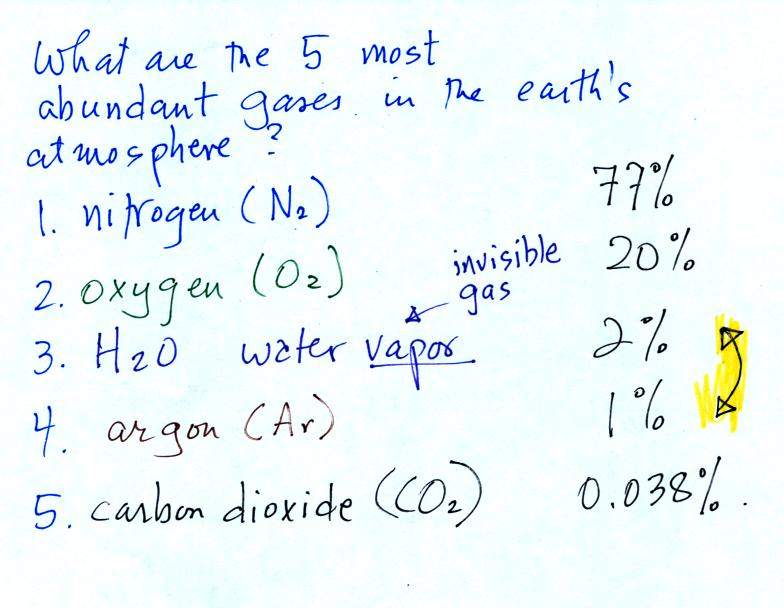 What are the 5 most
abundant gases in the earth's
atmosphere?
1. nitrogen (N₂) 77%
2. oxygen (O₂) 20%
invisible
gas
3. H₂O water vapor 2%
4. argon (Ar) 1%
5. carbon dioxide (CO₂) 0.038%.